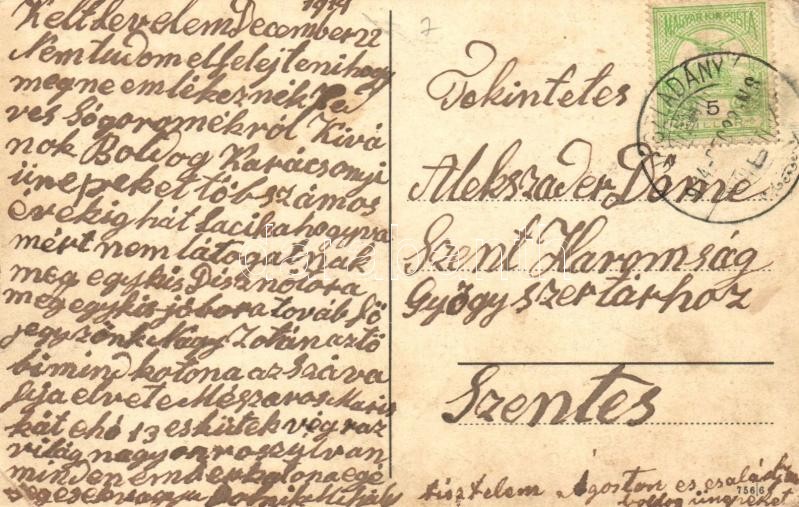 1914
Kelt levelem December 22
Nem tudom elfelejteni hogy
meg ne emlékeznék Ke
ves Sógoromékról Kivá
nok Boldog Karácsonyi
ünepeket több számos
evekig hát Lacika hogy va
mért nem látogatnak
meg egy kis Disznótora
meg egy kis jó bora továb Fő
jegyzönk Nagy Zoltán az tö
bi mind katona az Száva
fija elvete Mészaros Maris
kát e hó 13 esküttek vég raz
világ nagyon rosz ilyan
minden ember katona egé
7
MAGYAR KIR. POSTA
5
Tekintetes
Alekszader Döme
Szent Haromság
Gyógyszertárhoz
Szentes
tisztelem Ágoston es család
boldog ünepeket
7566
darabanth